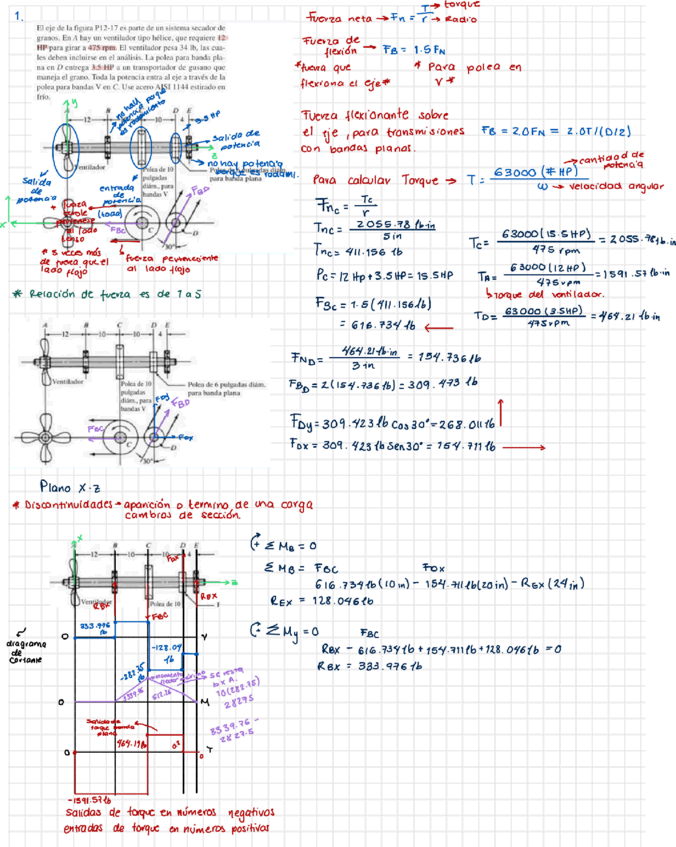 1.
El eje de la figura P12-17 es parte de un sistema secador de
granos. En A hay un ventilador tipo hélice, que requiere 12
HP para girar a 475 rpm. El ventilador pesa 34 lb, las cua-
les deben incluirse en el análisis. La polea para banda pla-
na en D entrega 3.5 HP a un transportador de gusano que
maneja el grano. Toda la potencia entra al eje a través de la
polea para bandas V en C. Use acero AISI 1144 estirado en
frío.
Fuerza neta → Fn = T/r
→ torque
→ Radio
Fuerza de
flexión → FB = 1.5 FN
*fuerza que
flexiona el eje*
* Para polea en
V *
Fuerza flexionante sobre
el eje, para transmisiones
con bandas planas.
FB = 2.0FN = 2.0T/(D/2)
Para calcular Torque → T = 63000 (# HP) / ω
→ cantidad de
potencia
→ velocidad angular
y
A B C D E
12 10 10 4
3.5 HP
salida de
potencia
z
no hay potencia
Ventilador
Salida
de
potencia
entrada
de
potencia
Polea de 10
pulgadas
diám., para
bandas V
para banda plana
x
FBC
FBD
C
D
30°
(lado)
* 5 veces más
de fuerza que el
lado flojo
fuerza perteneciente
al lado flojo
* Relación de fuerza es de 1 a 5
FNC = TC / r
TNC = 2055.78 lb·in / 5 in
TNC = 411.156 lb
PC = 12 Hp + 3.5 HP = 15.5 HP
FBC = 1.5 (411.156 lb)
= 616.734 lb ←
TC = 63000 (15.5 HP) / 475 rpm = 2055.78 lb·in
TA = 63000 (12 HP) / 475 rpm = 1591.57 lb·in
↳ torque del ventilador.
TD = 63000 (3.5HP) / 475 rpm = 464.21 lb·in
FND = 464.21 lb·in / 3 in = 154.736 lb
FBD = 2(154.736 lb) = 309.473 lb
FDy = 309.423 lb cos 30° = 268.011 lb
FDx = 309.423 lb Sen 30° = 154.711 lb
A B C D E
12 10 10 4
Ventilador
Polea de 10
pulgadas
diám., para
bandas V
Polea de 6 pulgadas diám.
para banda plana
FDy
FBD
FBC
FDx
C
D
30°
Plano X-Z
* Discontinuidades → aparición o termino de una carga
cambios de sección
x
A B C D E
12 10 10 4
FDX
z
Ventilador
RBX
Polea de 10
REX
FBC
diagrama
de
cortante
0
333.976
lb
-282.75
lb
-128.04
lb
V
0
M
10(282.75)
2827.5
3339.76 -
2827.5
Salida de
torque banda
plana
464.19 lb
0
T
-1591.57 lb
Salidas de torque en números negativos
entradas de torque en números positivos
Σ MB = 0
Σ MB = FBC FDX
616.734 lb (10 in) - 154.711 lb (20 in) - REX (24 in)
REX = 128.046 lb
Σ My = 0
FBC
RBX - 616.734 lb + 154.711 lb + 128.046 lb = 0
RBX = 333.976 lb